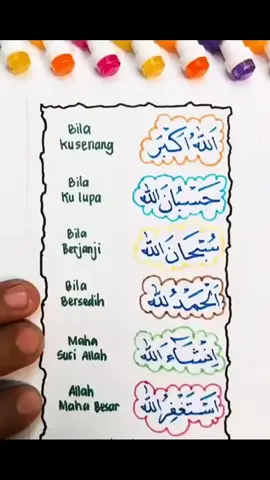 Bila
Kusenang
اَللّٰهُ اَكْبَرْ
Bila
Ku lupa
حَسْبُانَ اللّٰه
Bila
Berjanji
سُبْحَانَ اللّٰه
Bila
Bersedih
اَلْحَمْدُ لِلّٰه
Maha
Suri Allah
اِنْشَاءَ اللّٰه
Allah
Maha Besar
اَسْتَغْفِرُ اللّٰه